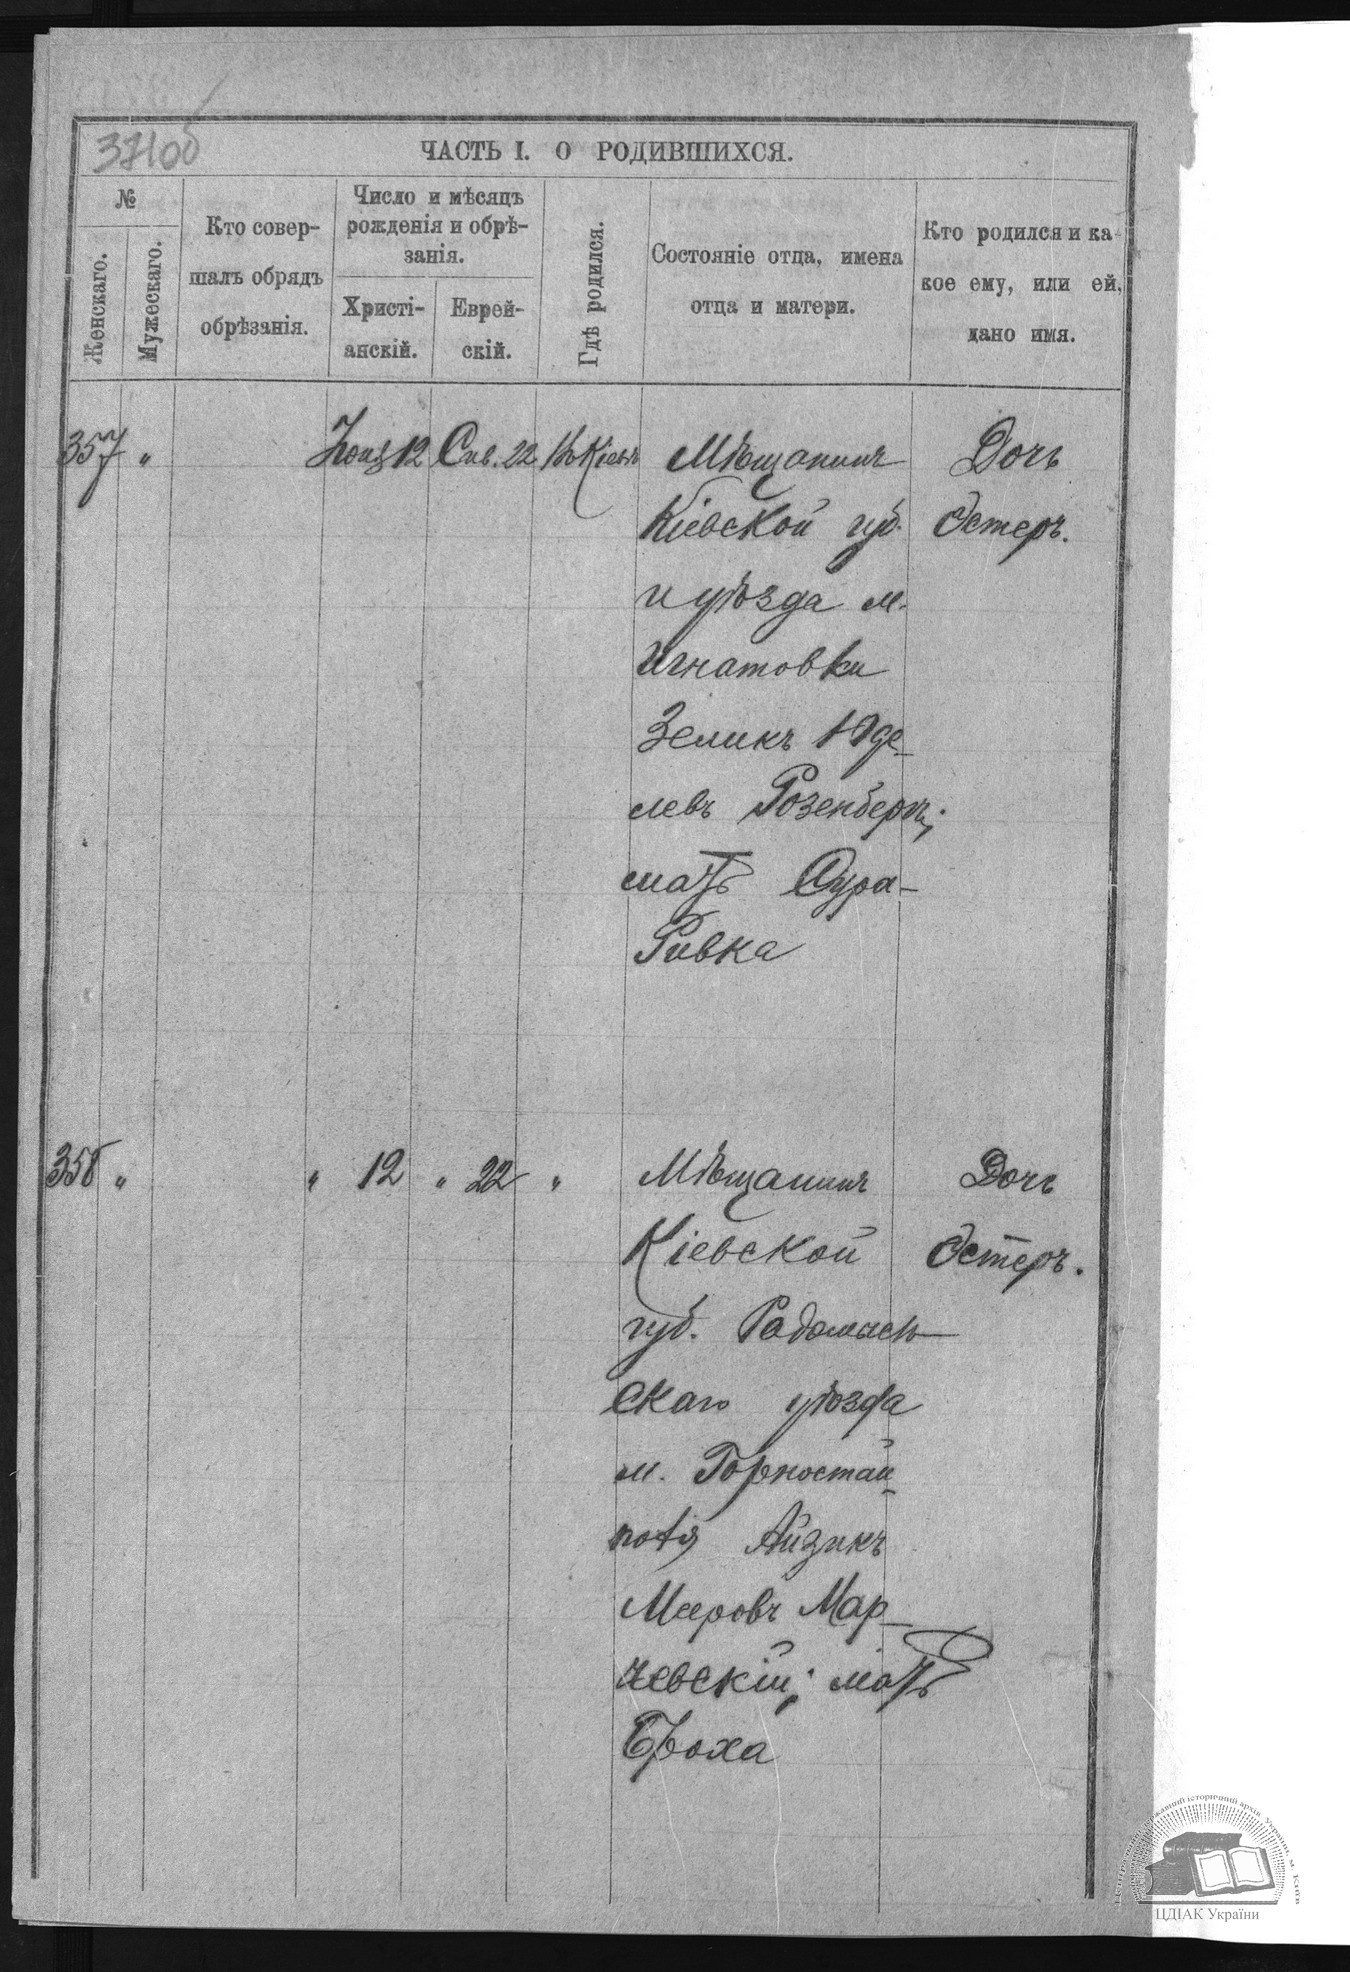 371об
ЧАСТЬ I. О РОДИВШИХСЯ.
№
Женскаго.
Мужескаго.
Кто совер-
шалъ обрядъ
обрѣзанія.
Число и мѣсяцъ
рожденія и обрѣ-
занія.
Христі-
анскій.
Еврей-
скій.
Гдѣ родился.
Состояніе отца, имена
отца и матери.
Кто родился и ка-
кое ему, или ей,
дано имя.
357 „ 12 Сив. 22 Въ Кіевѣ Мѣщанинъ Дочь
Кіевской губ. Эстеръ.
и уѣзда м.
Игнатовки
Зеликъ Юде-
левъ Розенбергъ;
мать Сура-
Ривка
358 „ „ 12 „ 22 „ Мѣщанинъ Дочь
Кіевской Эстеръ.
губ. Радомысль-
скаго уѣзда
м. Горностай-
поля Айзикъ
Мееровъ Мар-
чевскій; мать
Броха
ЦДІАК України